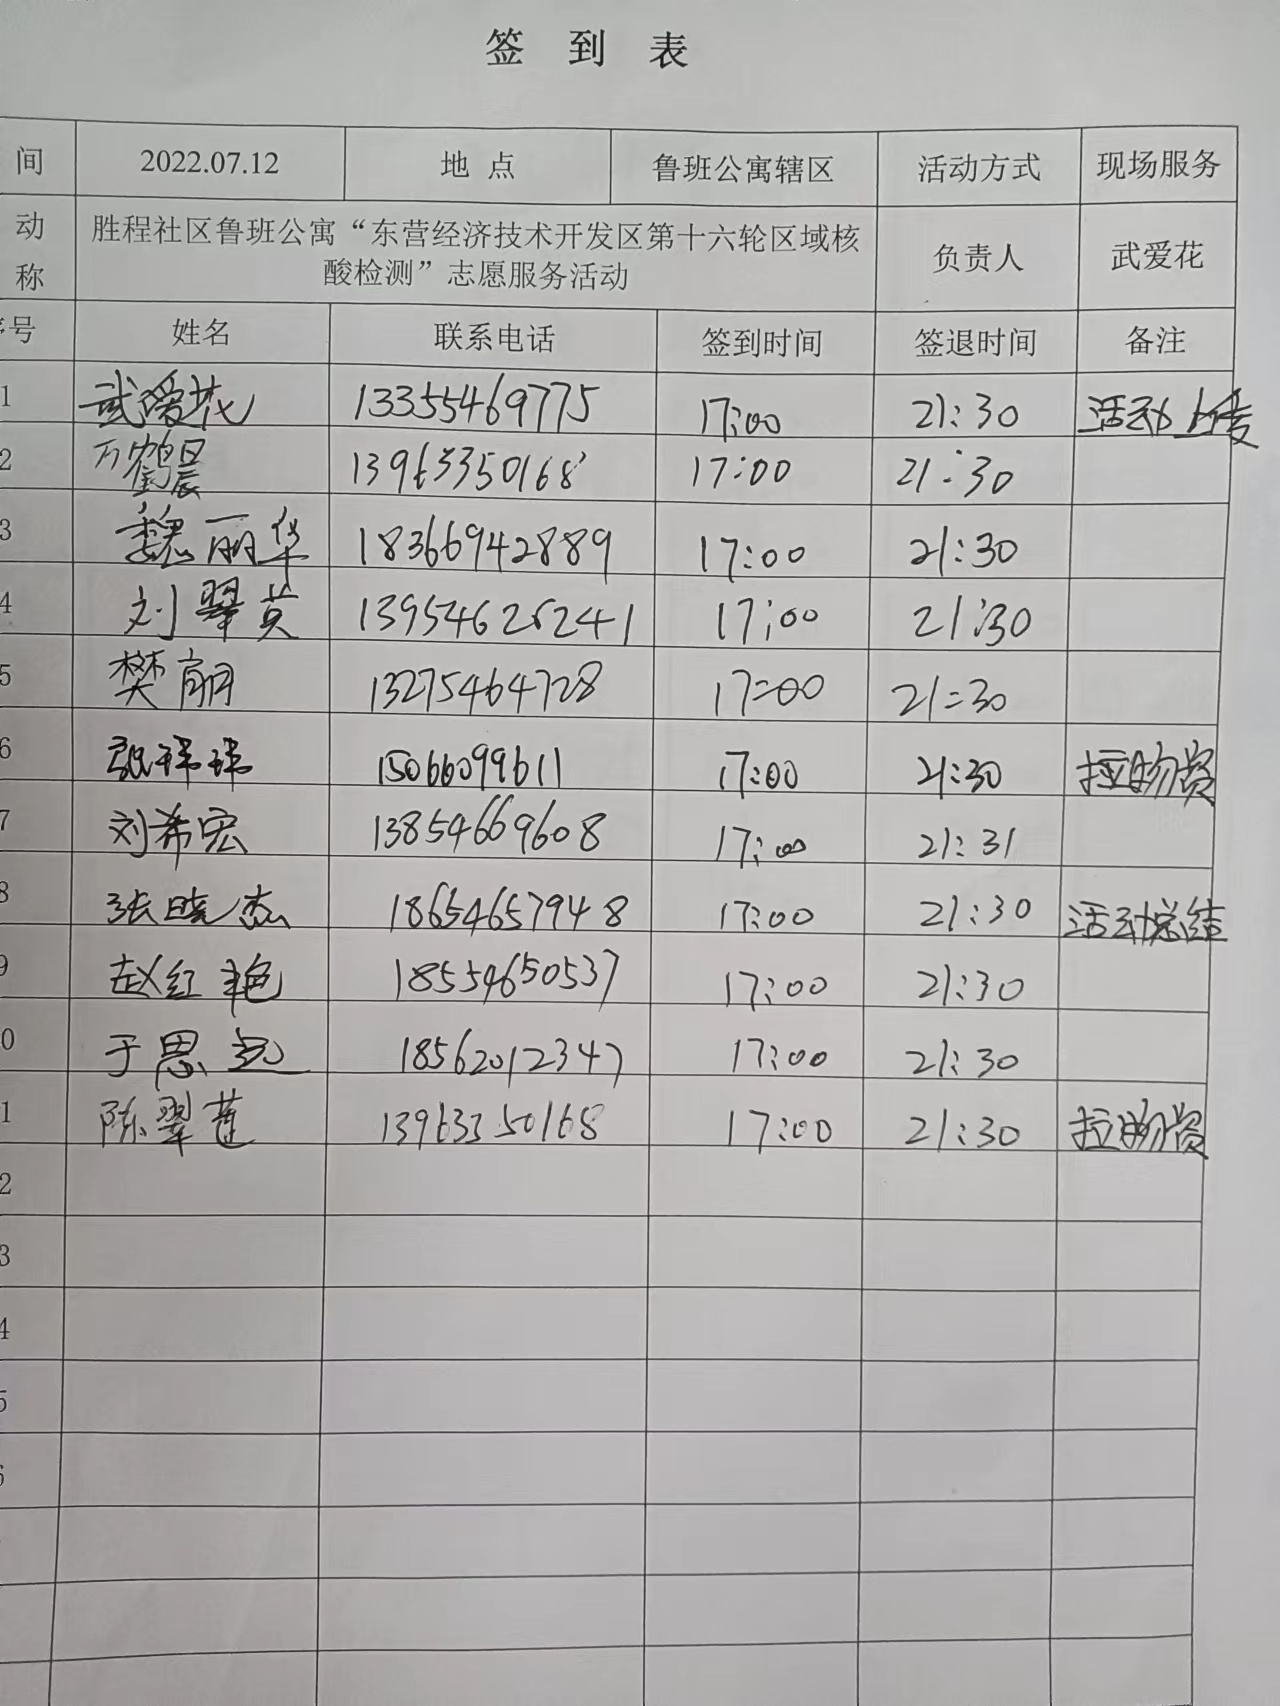 签 到 表
间 2022.07.12 地 点 鲁班公寓辖区 活动方式 现场服务
动 称 胜程社区鲁班公寓“东营经济技术开发区第十六轮区域核
酸检测”志愿服务活动 负责人 武爱花
号 姓名 联系电话 签到时间 签退时间 备注
1 武爱花 13355469775 17:00 21:30 活动上传
2 万鹤晨 13963350168 17:00 21:30
3 魏丽华 18366942889 17:00 21:30
4 刘翠英 13954626241 17:00 21:30
5 樊丽 13275464728 17:00 21:30
6 张玮玮 15066099611 17:00 21:30 拉物资
7 刘希宏 13854669608 17:00 21:31
8 张晓杰 18654657948 17:00 21:30 活动总结
9 赵红艳 18554650537 17:00 21:30
0 于思 18562012347 17:00 21:30
1 陈翠莲 13963350168 17:00 21:30 拉物资
2
3
4
5
6